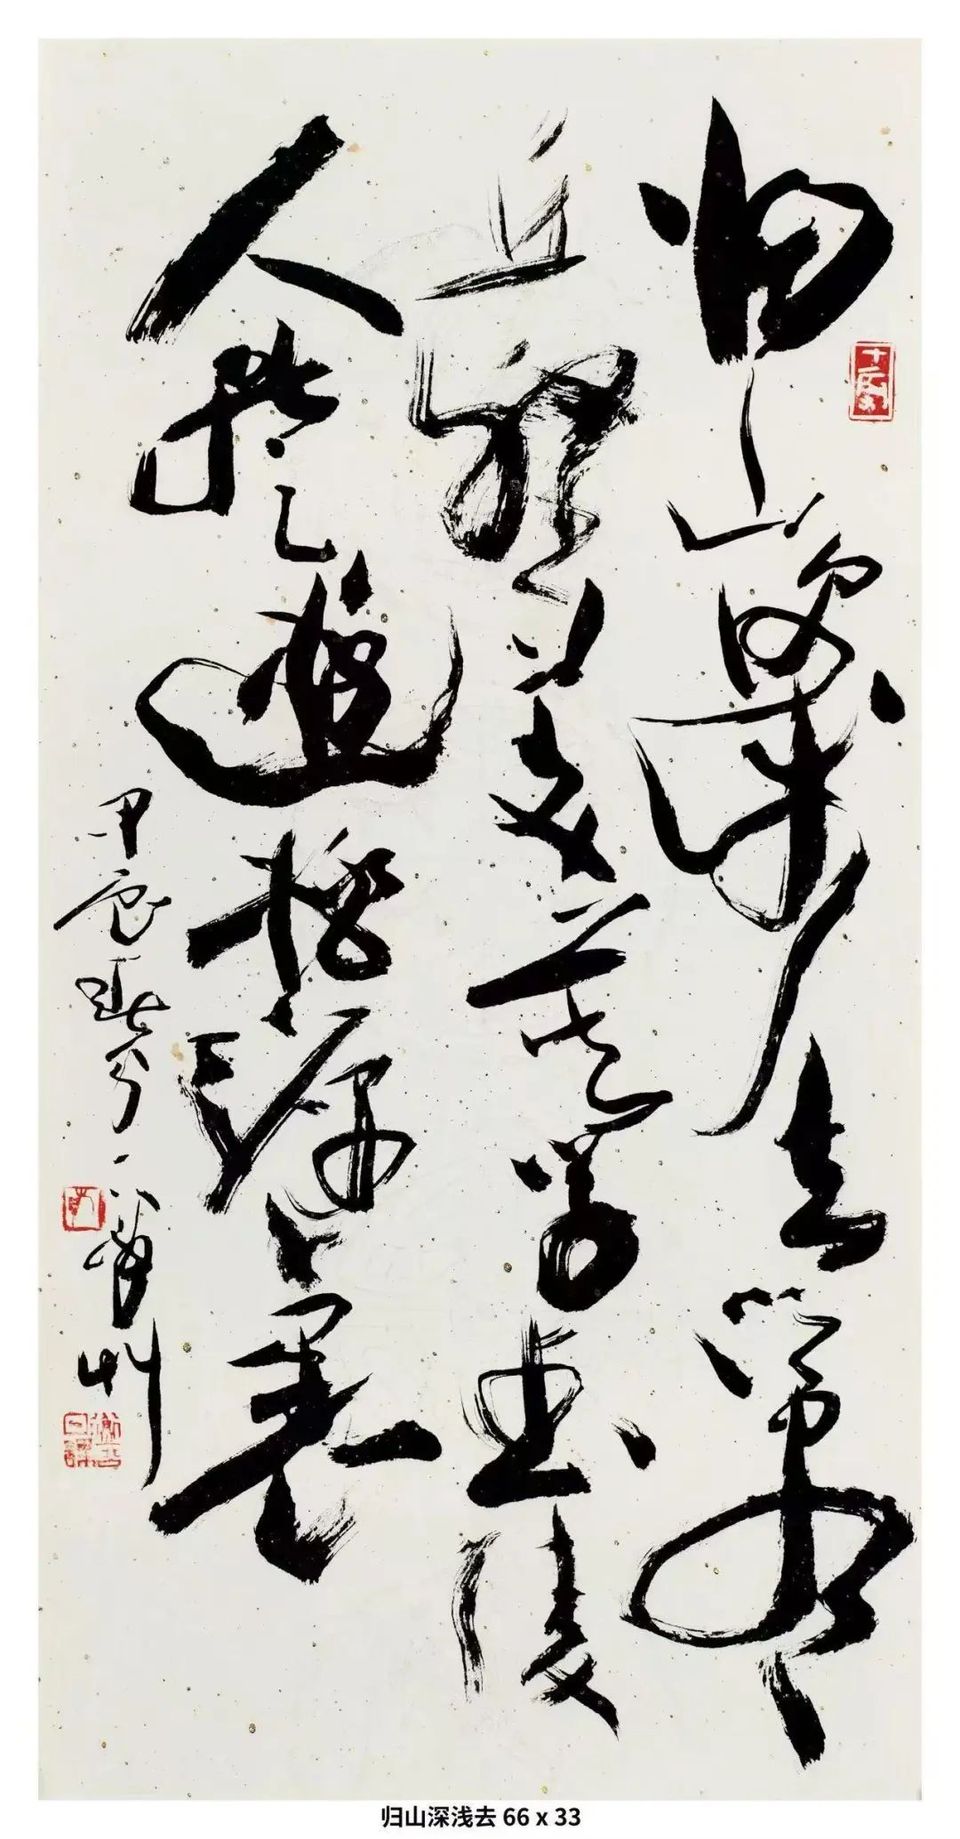 归山深浅去须尽
丘壑美莫学武陵
人暂之遊桃源裏
甲辰春分
归山深浅去 66 x 33